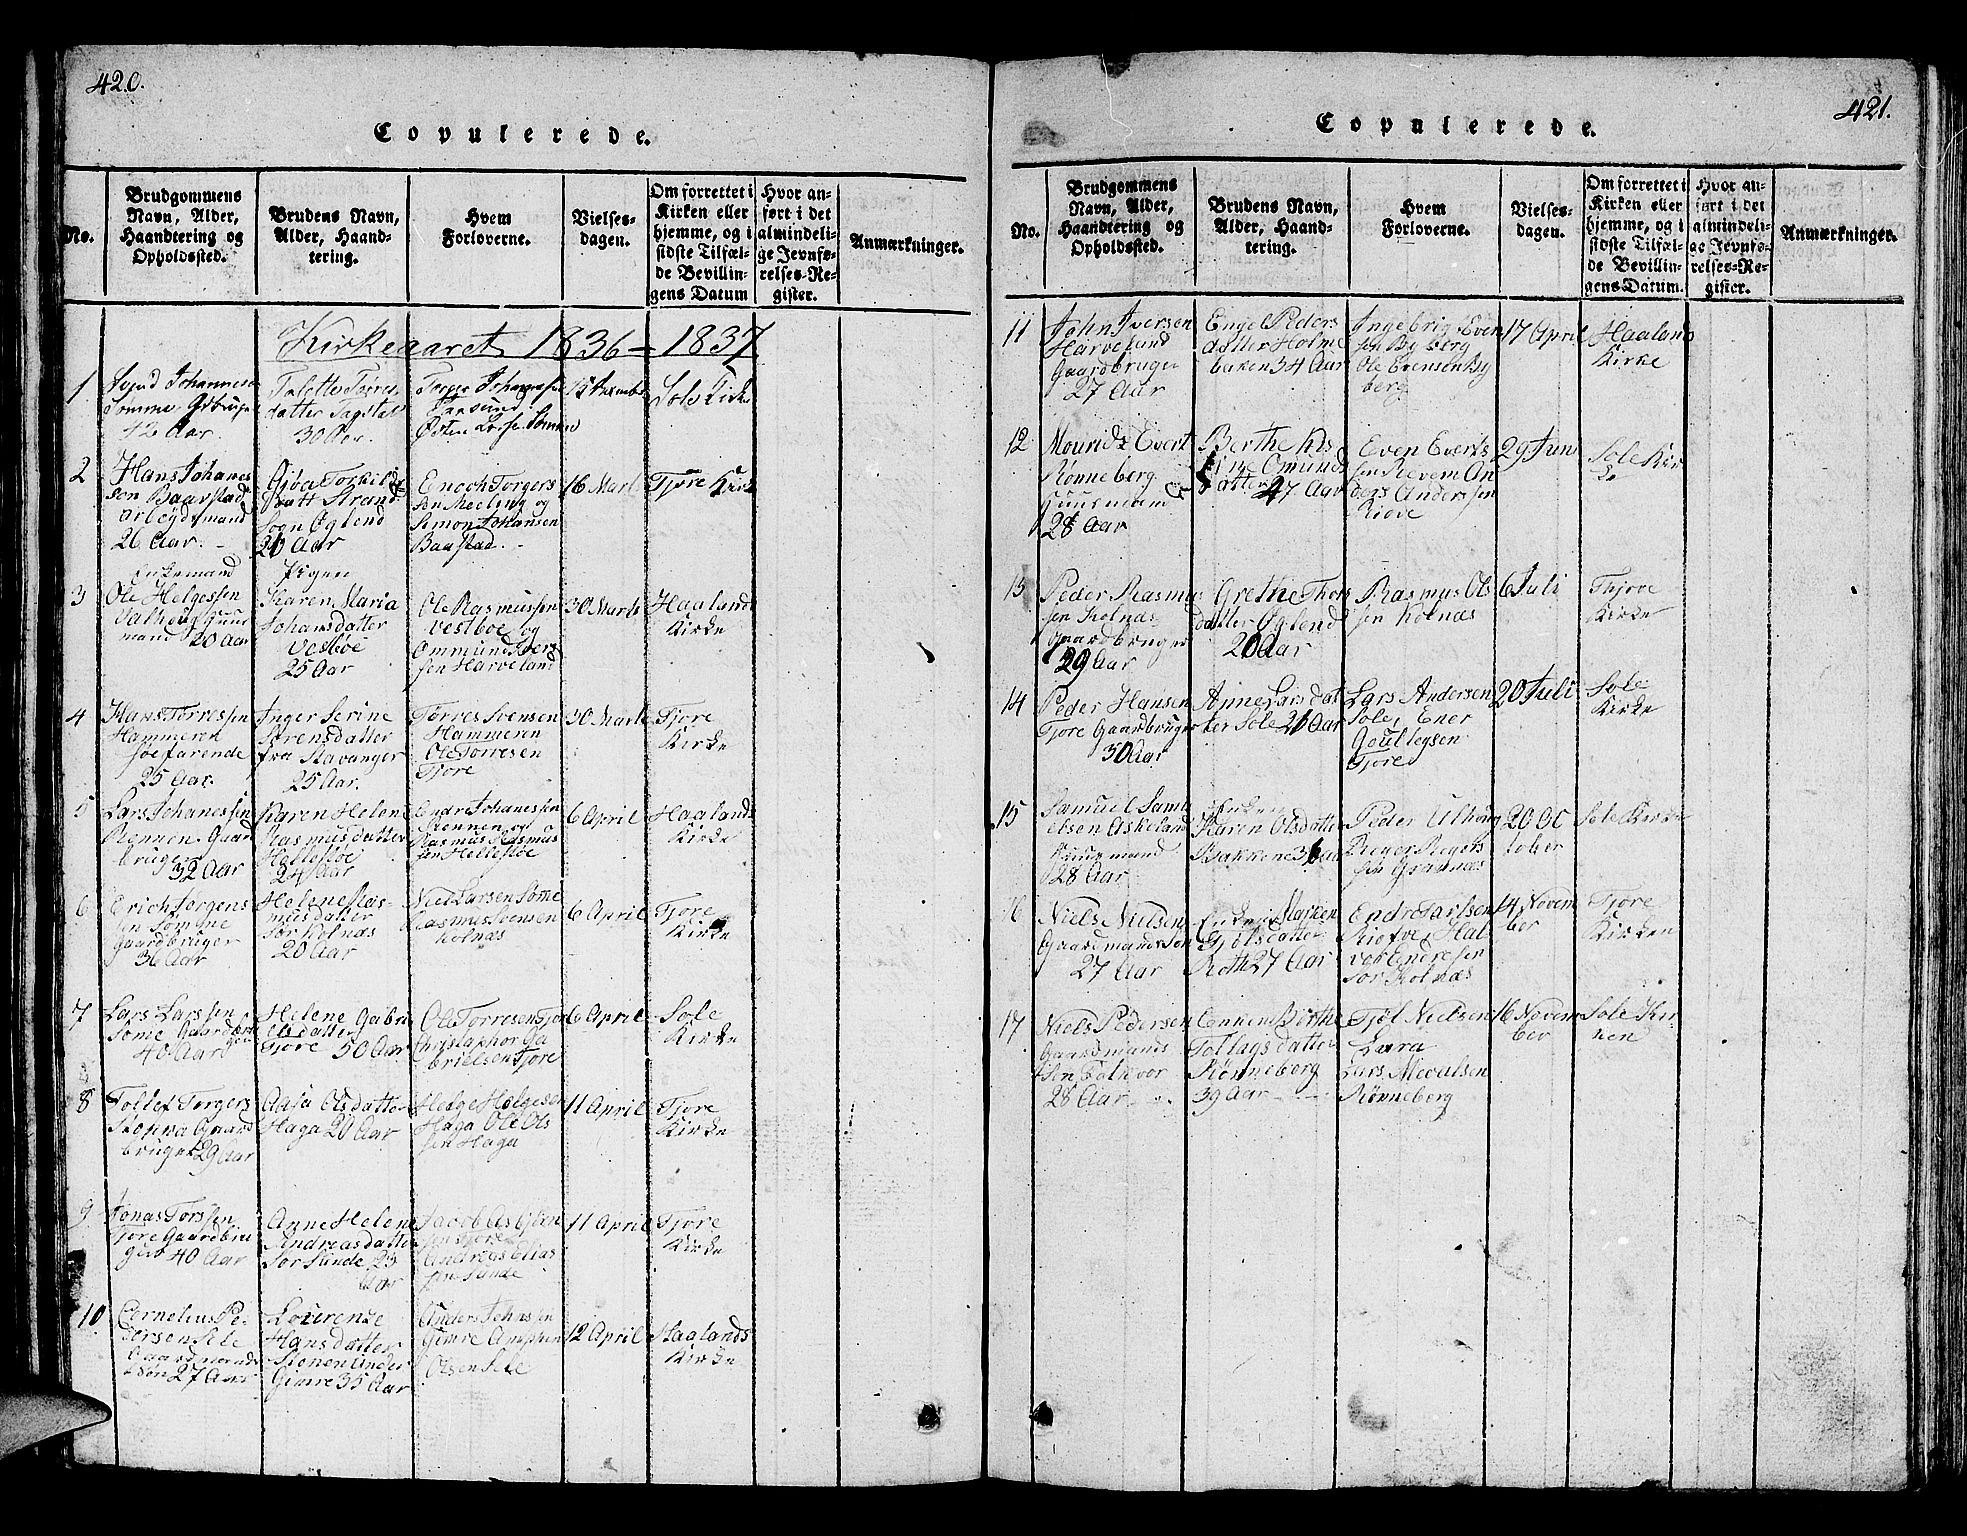 420.
Copulerede.
No.
Brudgommens
Navn, Alder,
Haandtering og
Opholdssted.
Brudens Navn,
Alder, Haand-
tering.
Hvem
Forloverne.
Vielses-
dagen.
Om forrettet i
Kirken eller
hjemme, og i
sidste Tilfæl-
de Bevillin-
gens Datum
Hvor an-
ført i det
almindeli-
ge Jevnfø-
relses-Re-
gister.
Anmærkninger.
Kirkeaaret 1836-1837
1
Johannes
42 Aar.
30 Aar.
Sole Kirke
2
Hans Johanes
sen Baarstad
arbeydsmand
26 Aar.
Gjøa Torkels
datt Strand
Sogn Øglend
Aar
Enoch Torgers
sen Meeling og
Simon Johansen
Baastad.
16 Marti
Tjore Kirke
3
Enkemand
Ole Helgessen
mand 20 Aar
Pigen
Karen Maria
Johansdatter
Vestbøe
25 Aar
Ole Rasmussen
Vestboe og
Ommund Ivers
sen Harveland
30 Marti
Haalands
Kirke
4
Hans Torressen
Hammeren
søefarende
25 Aar.
Inger Serine
Sørensdatter
fra Stavanger
25 Aar.
Torres Svensen
Hammeren
Ole Torresen
Tjore
30 Marti
Tjore
Kirke
5
Lars Johanessen
Rennen. Gaard
bruger
32 Aar
Karen Helene
Rasmusdatter
Hellestøe
24 Aar
Endre Johanessen
Rennen og
Rasmus Rasmus
sen Hellestøe
6 April
Haalands
Kirke
6
Erich Torgens
sen Sømme
Gaardbruger
36 Aar
Helene Ras-
musdatter
Sør Kolnæs
20 Aar
Niels Larsen Sømme
Rasmus Svensen
Kolnæs
6 April
Tjore
Kirke
7
Lars Larssen
Some Gaardbru
ger
40 Aar
Helene Gabri
elsdatter
Tjore 50 Aar
Ole Torresen Tjore
Christophor Ga
brielsen Tjore
6 April
Sole
Kirke
8
Tollef Torgers
Gaard
bruger 29 Aar
Aasa Olsdatter
Haga 20 Aar
Helge Helgesen
Haga Ole Ols
sen Haga
11 April
Tjore
Kirke
9
Jonas Torssen
Tjore Gaardbru
ger 40 Aar
Anne Helene
Andreasdatter
Sør Sunde 23
Aar
Jacob Asbjøen
sen Tjore
Andreas Elias
sen Sunde
11 April
Tjore
Kirke
10
Cornelius Pe
dersen Sele
Gaardmands
søn 27 Aar
Lourense
Hansdatter
Gimre 35 Aar
Anders Johnssen
Gimre
Olsen Sele
12 April
Haalands
Kirke
421.
Copulerede.
No.
Brudgommens
Navn, Alder,
Haandtering og
Opholdssted.
Brudens Navn,
Alder, Haand-
tering.
Hvem
Forloverne.
Vielses-
dagen.
Om forrettet i
Kirken eller
hjemme, og i
sidste Tilfæl-
de Bevillin-
gens Datum.
Hvor an-
ført i det
almindeli-
ge Jevnfø-
relses-Re-
gister.
Anmærkninger.
11
John Iversen
Harveland
Gaardbruger
27 Aar
Engel Peders
datter Holme
bakken 34 Aar
Ingebrigt Even
sen Byberg
Ole Evensen By
berg
17 April
Haalands
Kirke
12
Mourids Evert
Rønneberg
Huusmand
28 Aar
Berthe Kis
tine Omunds
datter 47 Aar
Even Everts
sen Revem An
ders Anderssen
Risve
29 Juni
Sole Kir
ke
13
Peder Rasmu
sen Kolnæs
Gaardbruger
29 Aar
Grethe Thors
datter Øglend
Aar
Rasmus Ols
sen Kolnæs
6 Juli
Thjore
Kirke
14
Peder Hansen
Tjore Gaardbruger
30 Aar
Anne Larsdat
ter Sole Aar
Lars Andersen
Sole, Ener
Goutlegsen
Tjore
20 Juli
Sole
Kirke
15
Samuel Samu
elsen Askeland
Huusmand
28 Aar
Enken
Karen Olsdatter
Bakkene Aar
Peder Ulhoug
Reger Regers
sen Grannæs
20 Oc
tober
Sole Kirke
16
Niels Nielsen
Gaardmands søn
27 Aar
Enken Marken
Gjølsdatter
Roth 27 Aar
Endre Carlsen
Risfve, Hal
vor Endresen
Sør Kolnæs
14 Novem
ber
Tjore
Kirken
17
Niels Pedersen
Gaardmands
sen Folkvor
28 Aar
Enken Berthe
Tollagsdatter
Rønneberg
39 Aar
Tjøl Nielsen
Lura
Lars Mevalsen
Rønneberg
16 Novem
ber
Sole Kir-
ken